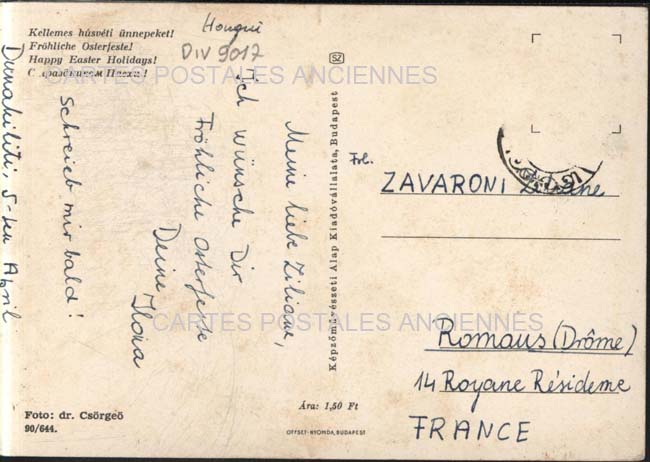 Kellemes húsvéti ünnepeket!
Fröhliche Osterfeste!
Happy Easter Holidays!
С праздником Пасхи!
Hongrie
DIV 9017
CARTES POSTALES ANCIENNES
Meine liebe Ziliane,
Ich wünsche Dir
Fröhliche Osterfeste
Deine Ilona
Schreib mir bald!
Dunakiliti, 5-ten April
Képzőművészeti Alap Kiadóvállalata, Budapest
Frl.
ZAVARONI
CARTES POSTALES ANCIENNES
Romans (Drôme)
14 Royane Résidence
FRANCE
Foto: dr. Csörgeő
90/644.
Ára: 1,50 Ft
OFFSET-NYOMDA, BUDAPEST